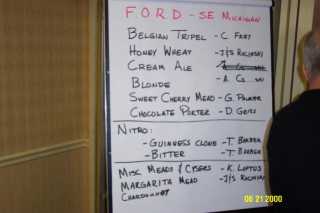 FORD - SE MICHIGAN
BELGIAN TRIPEL - C. FREY
HONEY WHEAT - J/S
CREAM ALE
BLONDE
SWEET CHERRY MEAD - G. PALMER
CHOCOLATE PORTER - D.
NITRO:
- GUINNESS CLONE - T.
- BITTER - T.
MISC MEADS / CYSERS - K. LOFTUS
MARGARITA MEAD - J/S
CHARDONNAY
06 21 2000